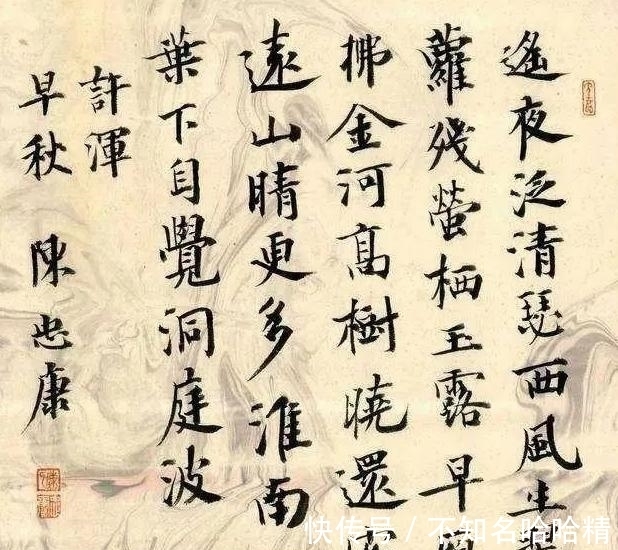 遙夜泛清瑟西風生
蘿殘螢栖玉露早
拂金河高樹曉還
遠山晴更多淮南
葉下自覺洞庭波
許渾
早秋 陳忠康
快传号 / 不知名哈哈精